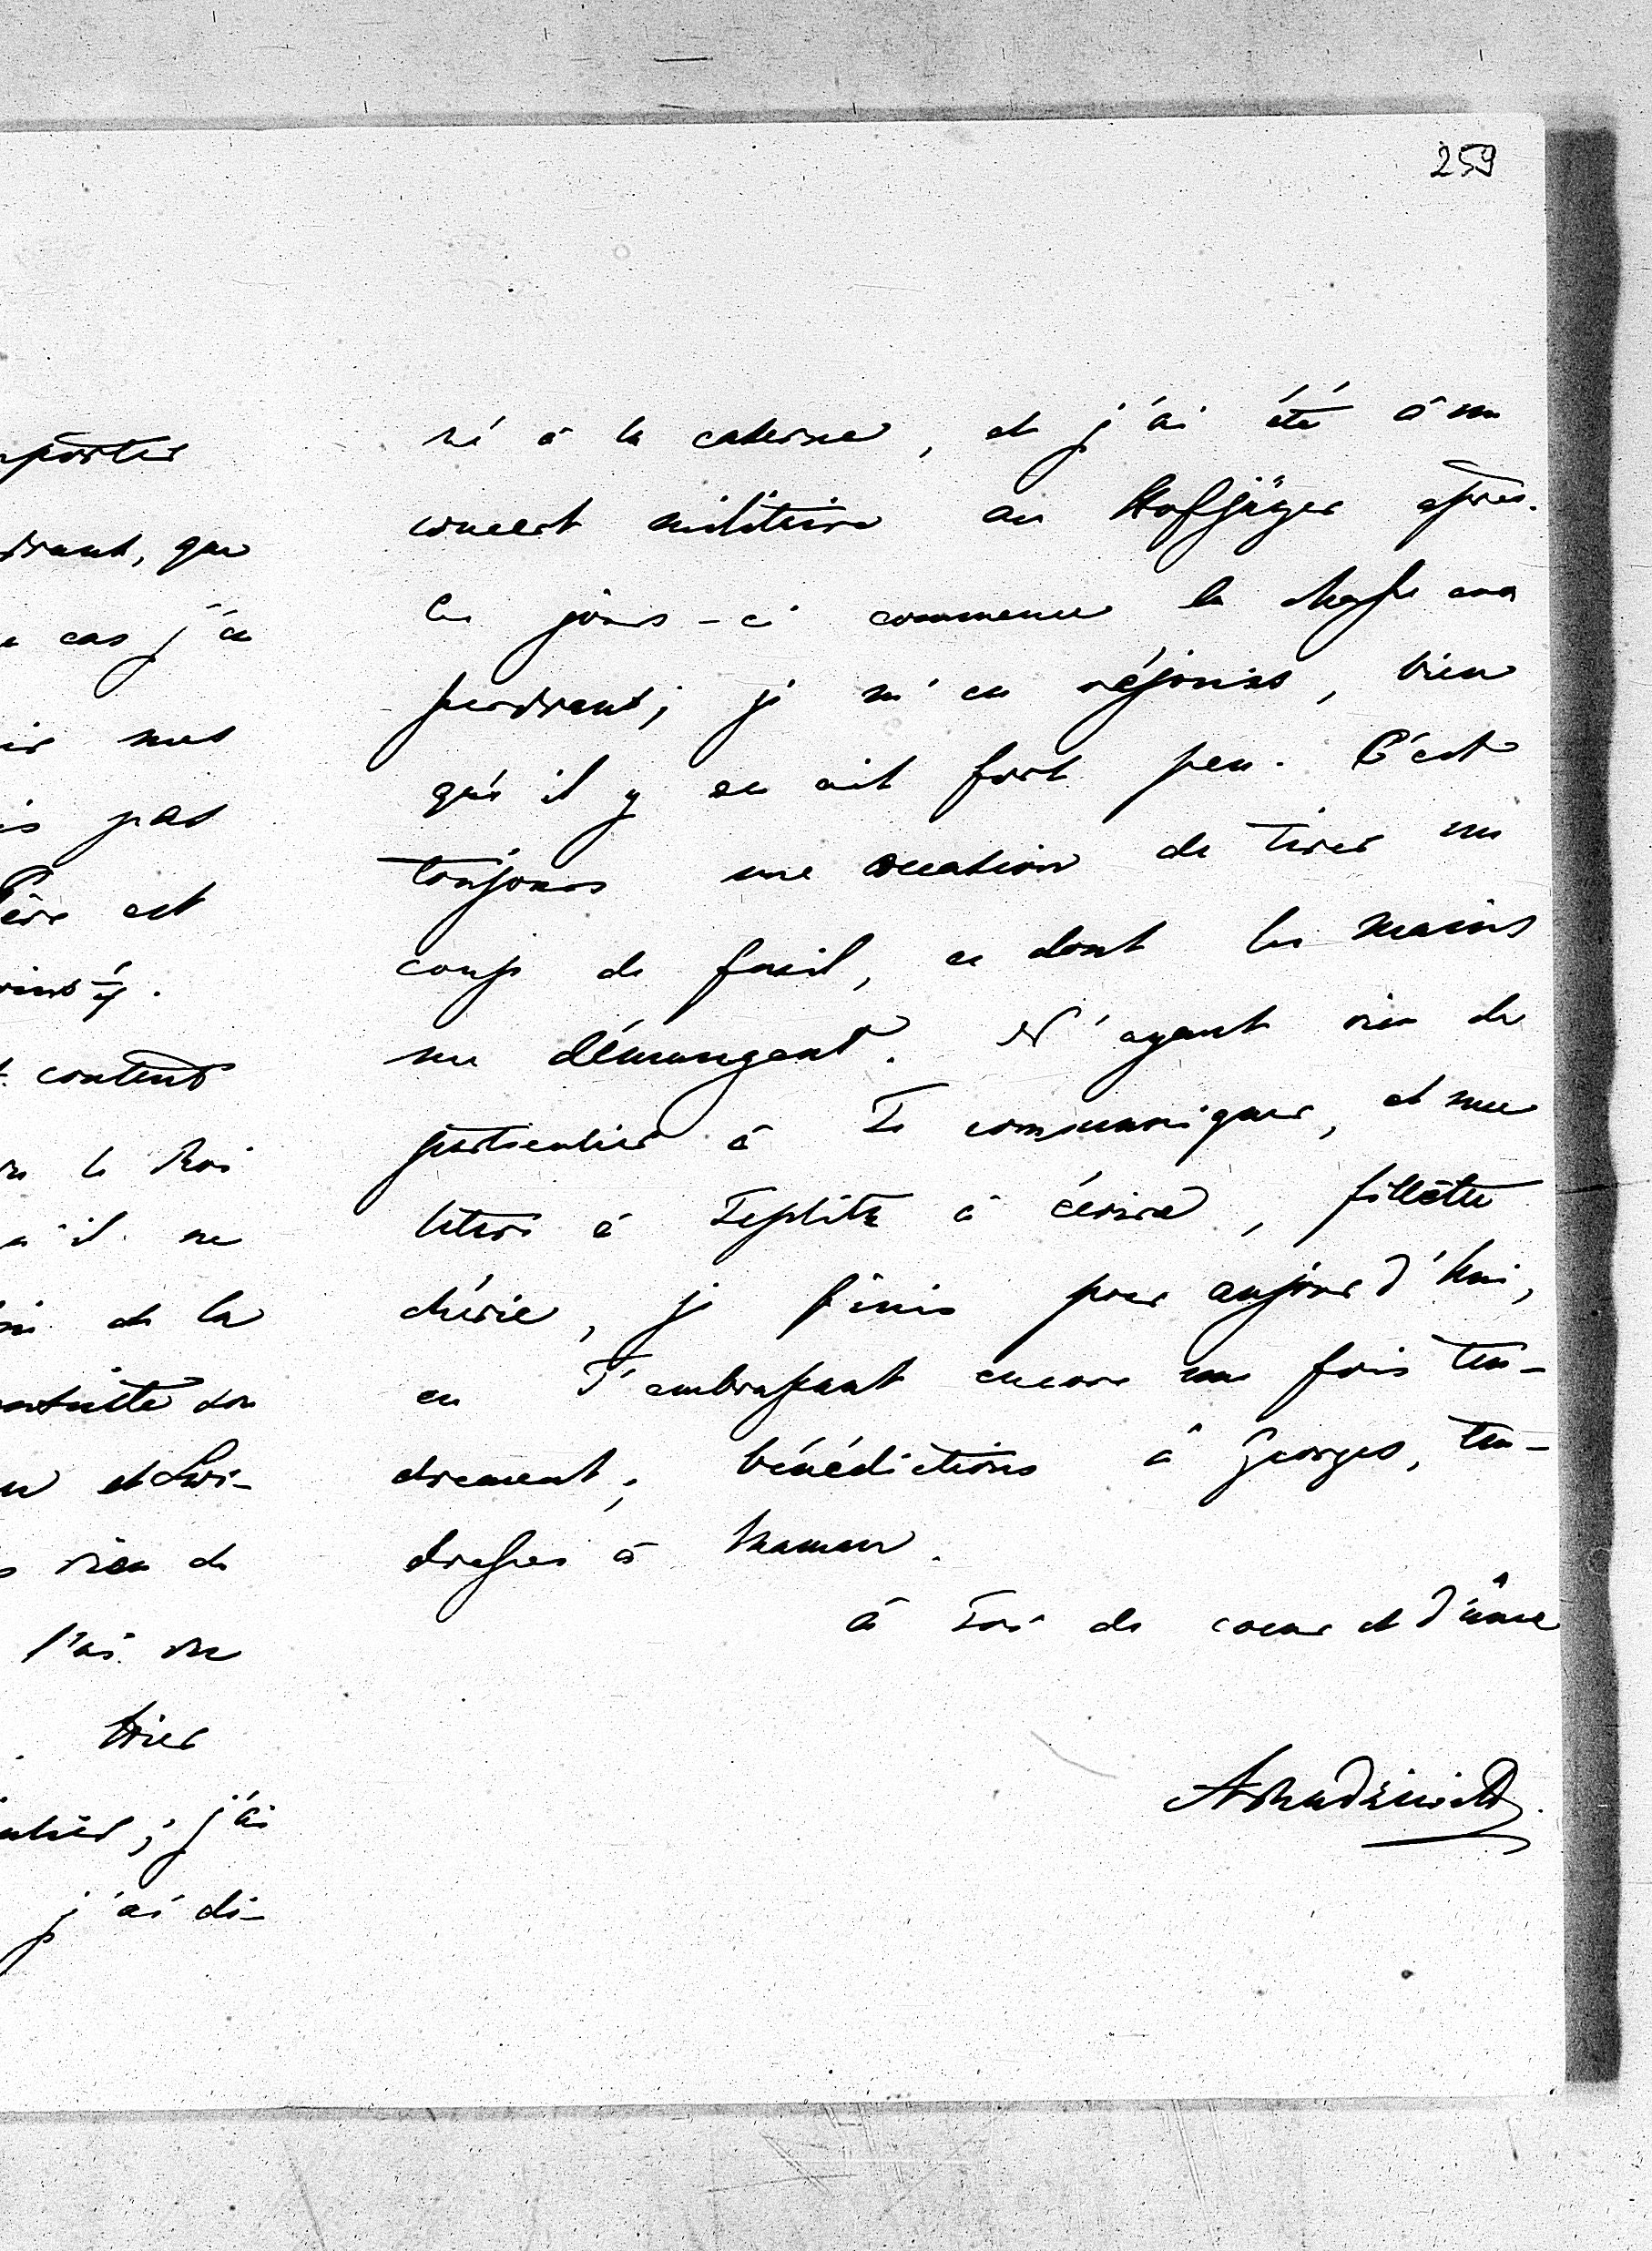 259
porter
drant, que
cas j'ai
mes
pas
Père est
content
le Roi
il ne
de la
ensuite son
et Lui-
rien de
l'ai vu
Hier
j'ai
j'ai dî-
né à la caserne, et j'ai été à un
concert militaire au Hofjäger après.
Ces jours-ci commence la chasse aux
perdreaux; je m'en réjouis, bien
qu'il y en ait fort peu. C'est
toujours une occasion de tirer un
coup de fusil, ce dont les mains
me démangent. N'ayant rien de
particulier à Te communiquer, et une
lettre à Teplitz à écrire, fillette
chérie, je finis pour aujourd'hui,
en T'embrassant encore une fois ten-
drement; bénédictions à Georges, ten-
dresses à Maman.
à Toi de coeur et d'âme
ARadziwill